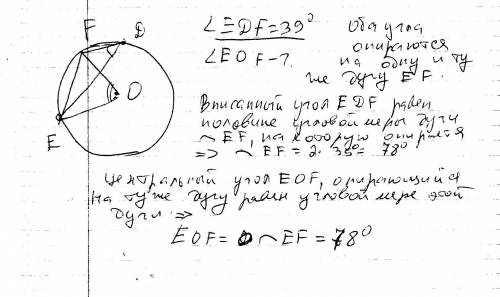 F
D
O
E
∠EDF=39°
∠EOF-?
Оба угла
опираются
на одну и ту
же дугу EF.
Вписанный угол EDF равен
половине угловой меры дуги
◡EF, на которую опирается
=> ◡EF = 2·39° = 78°
Центральный угол EOF, опирающийся
на ту же дугу равен угловой мере этой
дуги =>
EOF = ◡EF = 78°